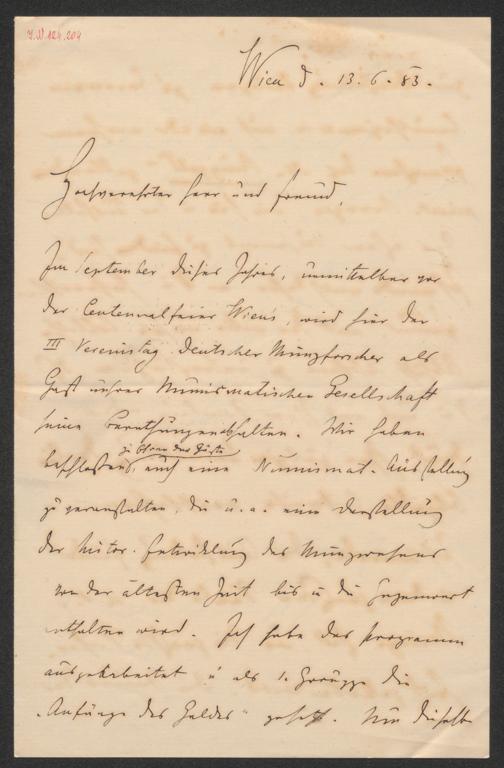 I.N. 124.204
Wien d. 13.6.83.
Hochverehrter Herr und Freund,
Im September dieses Jahres, unmittelbar vor
der Centennalfeier Wiens, wird hier der
III Vereinstag deutscher Münzforscher als
Gast unserer Numismatischen Gesellschaft
seine Berathungen abhalten. Wir haben
zu Ehren der Gäste
beschlossen, auch eine Numismat. Ausstellung
zu veranstalten, die u. a. eine Darstellung
der histor. Entwicklung des Münzwesens
von der ältesten Zeit bis in die Gegenwart
enthalten wird. Ich habe das Programm
ausgearbeitet u als 1. Gruppe die
„Anfänge des Geldes“ gesetzt. Um dieselbe